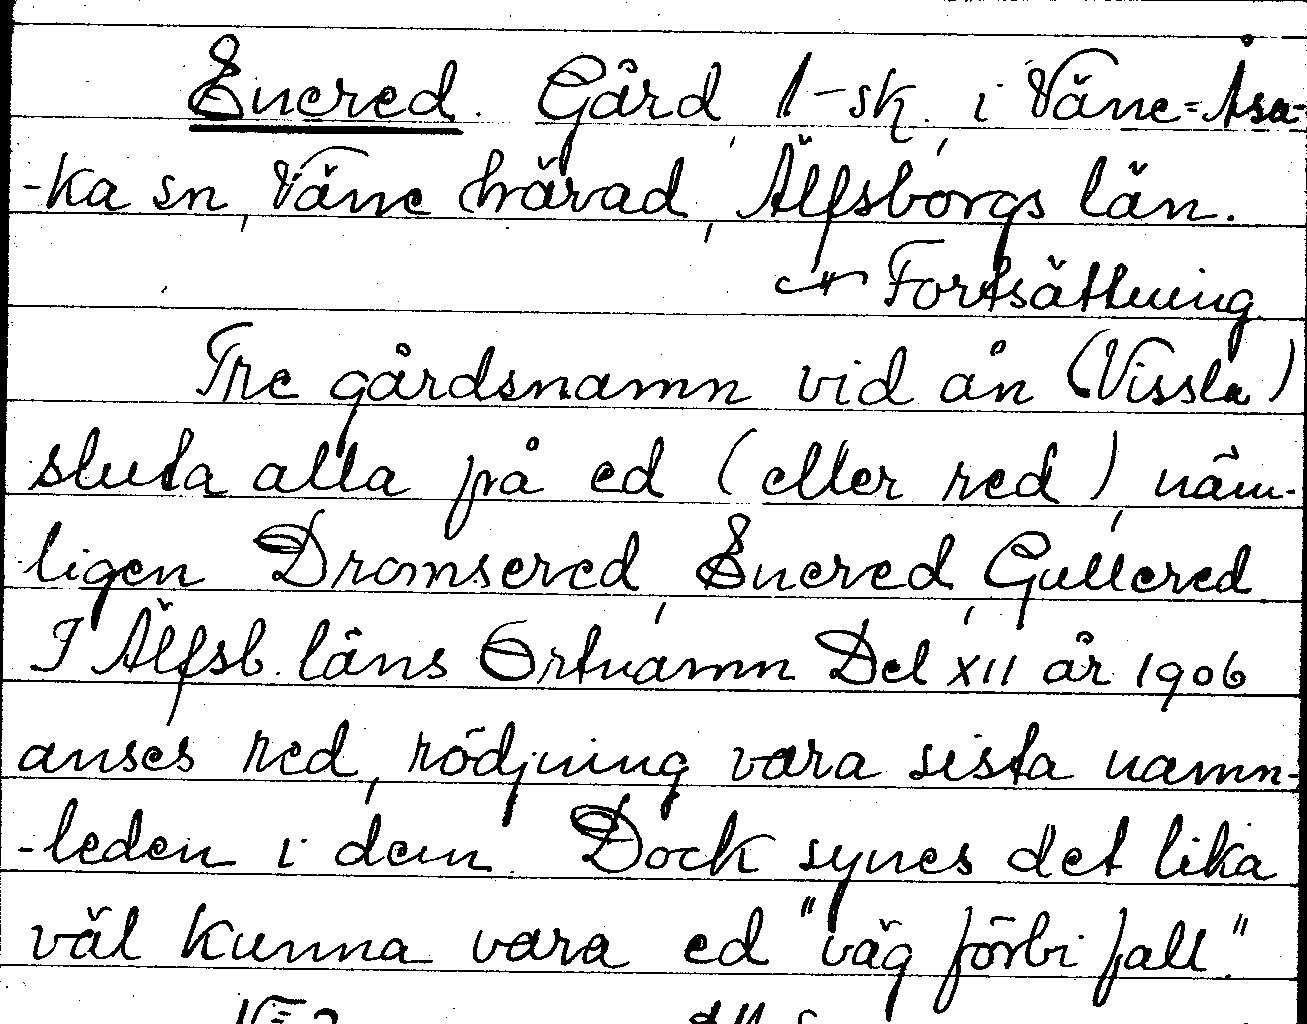 Enered. Gård, 1-sk. i Väne=Åsa=
-ka sn, Väne härad, Älfsborgs län.
Fortsättning
Tre gårdsnamn vid ån (Vissla)
sluta alla på ed (eller red), näm-
ligen Dromsered, Enered, Gullered.
I Älfsb. läns Ortnamn Del XII år 1906
anses red, rödjning vara sista namn-
-leden i dem. Dock synes det lika
väl kunna vara ed "väg förbi fall."